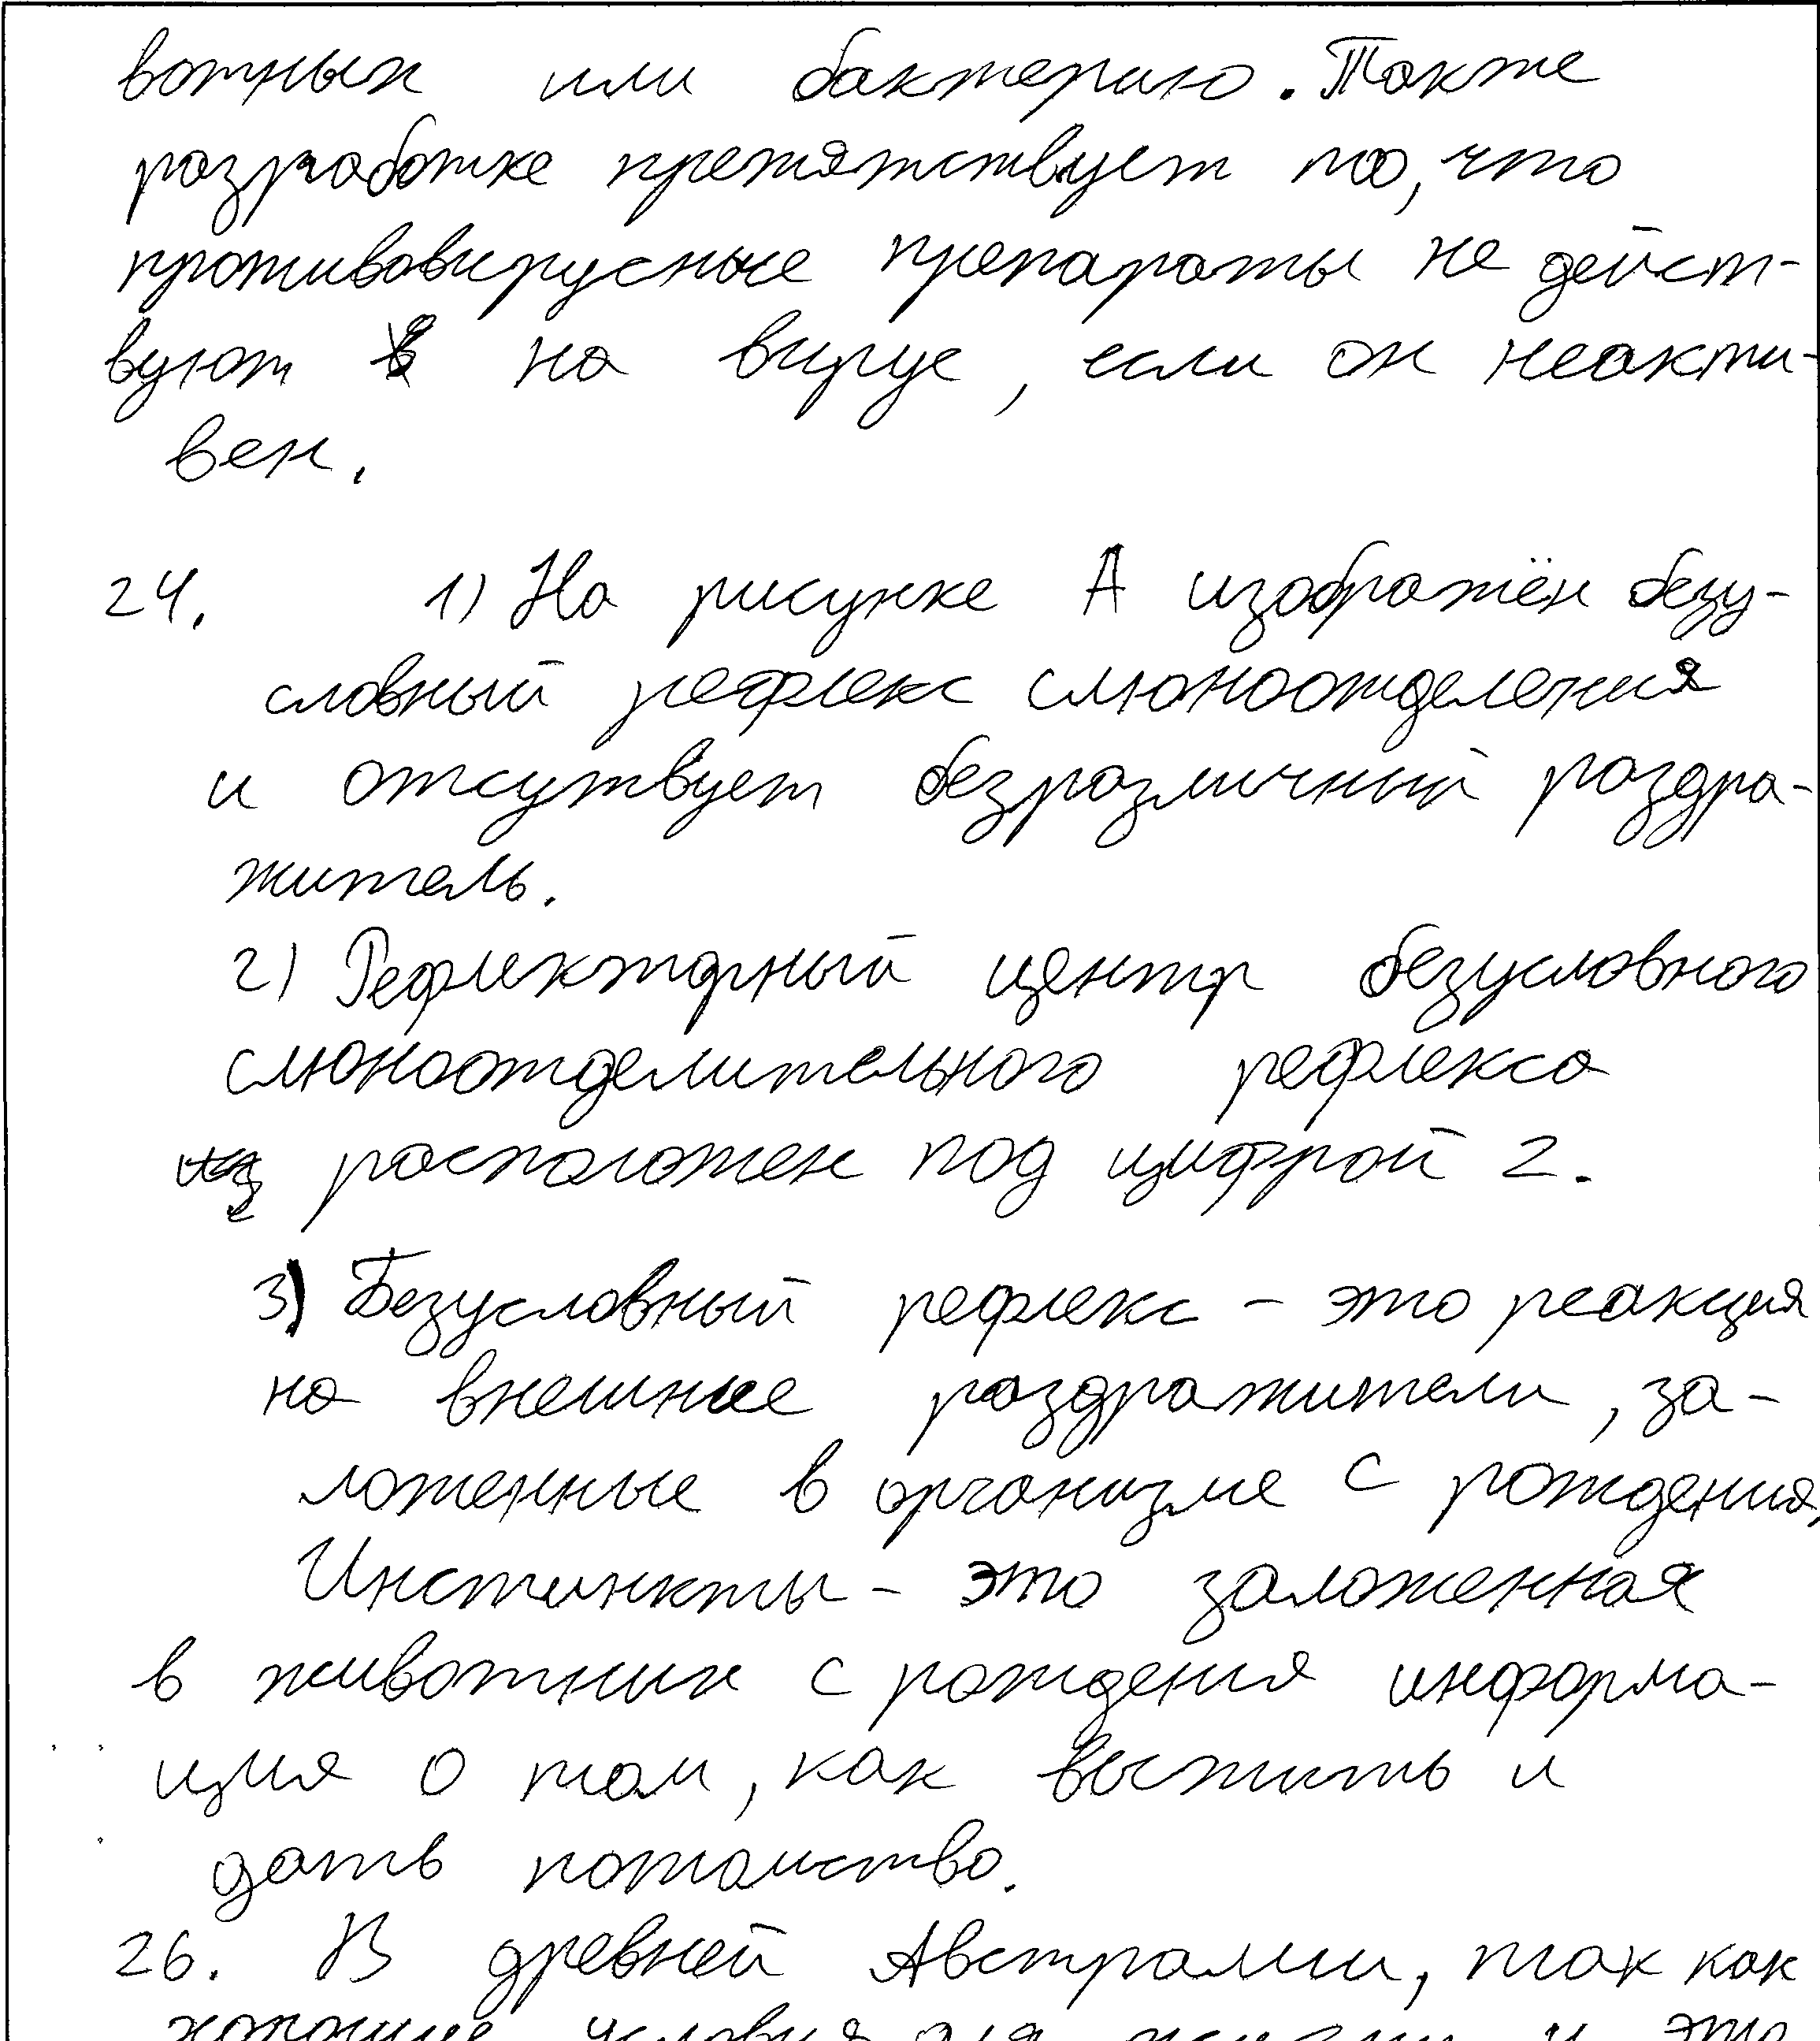 вотных или бактерию. Также
разработке препятствует то, что
противовирусные препараты не дейст-
вуют на вирус, если он неакти-
вен.
24. 1) На рисунке А изображён безу-
словный рефлекс слюноотделения
и отсутвует безразличный раздра-
житель.
2) Рефлекторный центр безусловного
слюноотделительного рефлекса
расположен под цифрой 2.
3) Безусловный рефлекс - это реакция
на внешние раздражители, за-
ложенные в организме с рождения.
Инстинкты - это заложенная
в животных с рождения информа-
ция о том, как выжить и
дать потомство.
26. В древней Австралии, так как
хорошие условия для жизни и это